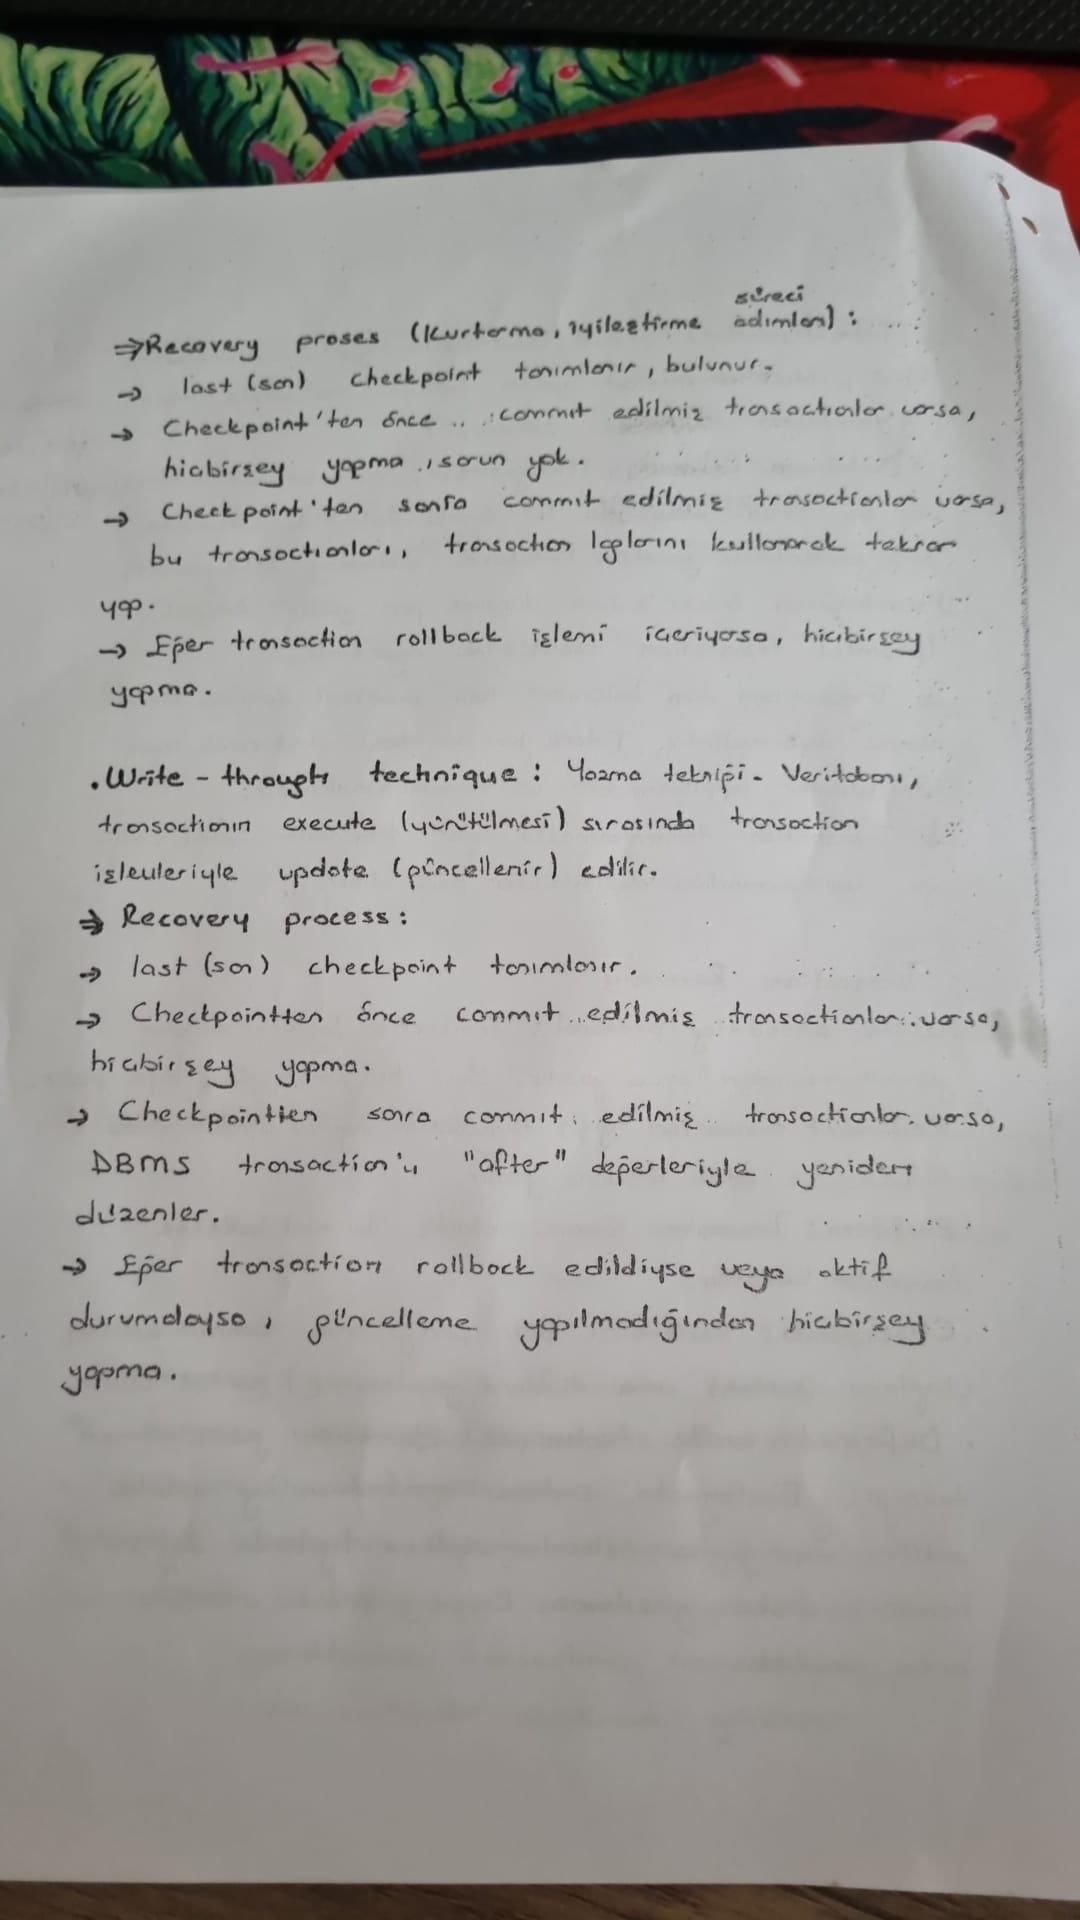 süreci
⇒ Recovery proses (Kurtarma, iyileştirme adımları) :
→ last (son) checkpoint tanımlanır, bulunur.
→ Checkpoint'ten önce commit edilmiş transactionlar varsa,
hiçbirşey yapma, sorun yok.
→ Checkpoint'ten sonra commit edilmiş transactionlar varsa,
bu transactionları, transaction loglarını kullanarak tekrar
yap.
→ Eğer transaction rollback işlemi içeriyorsa, hiçbirşey
yapma.
. Write - through technique : Yazma tekniği. Veritabanı,
transactionın execute (yürütülmesi) sırasında transaction
işlevleriyle update (güncellenir) edilir.
⇒ Recovery process :
→ last (son) checkpoint tanımlanır.
→ Checkpointten önce commit edilmiş transactionlar varsa,
hiçbirşey yapma.
→ Checkpointten sonra commit edilmiş transactionlar varsa,
DBMS transaction'ı "after" değerleriyle yeniden
düzenler.
→ Eğer transaction rollback edildiyse veya aktif
durumdaysa, güncelleme yapılmadığından hiçbirşey
yapma.